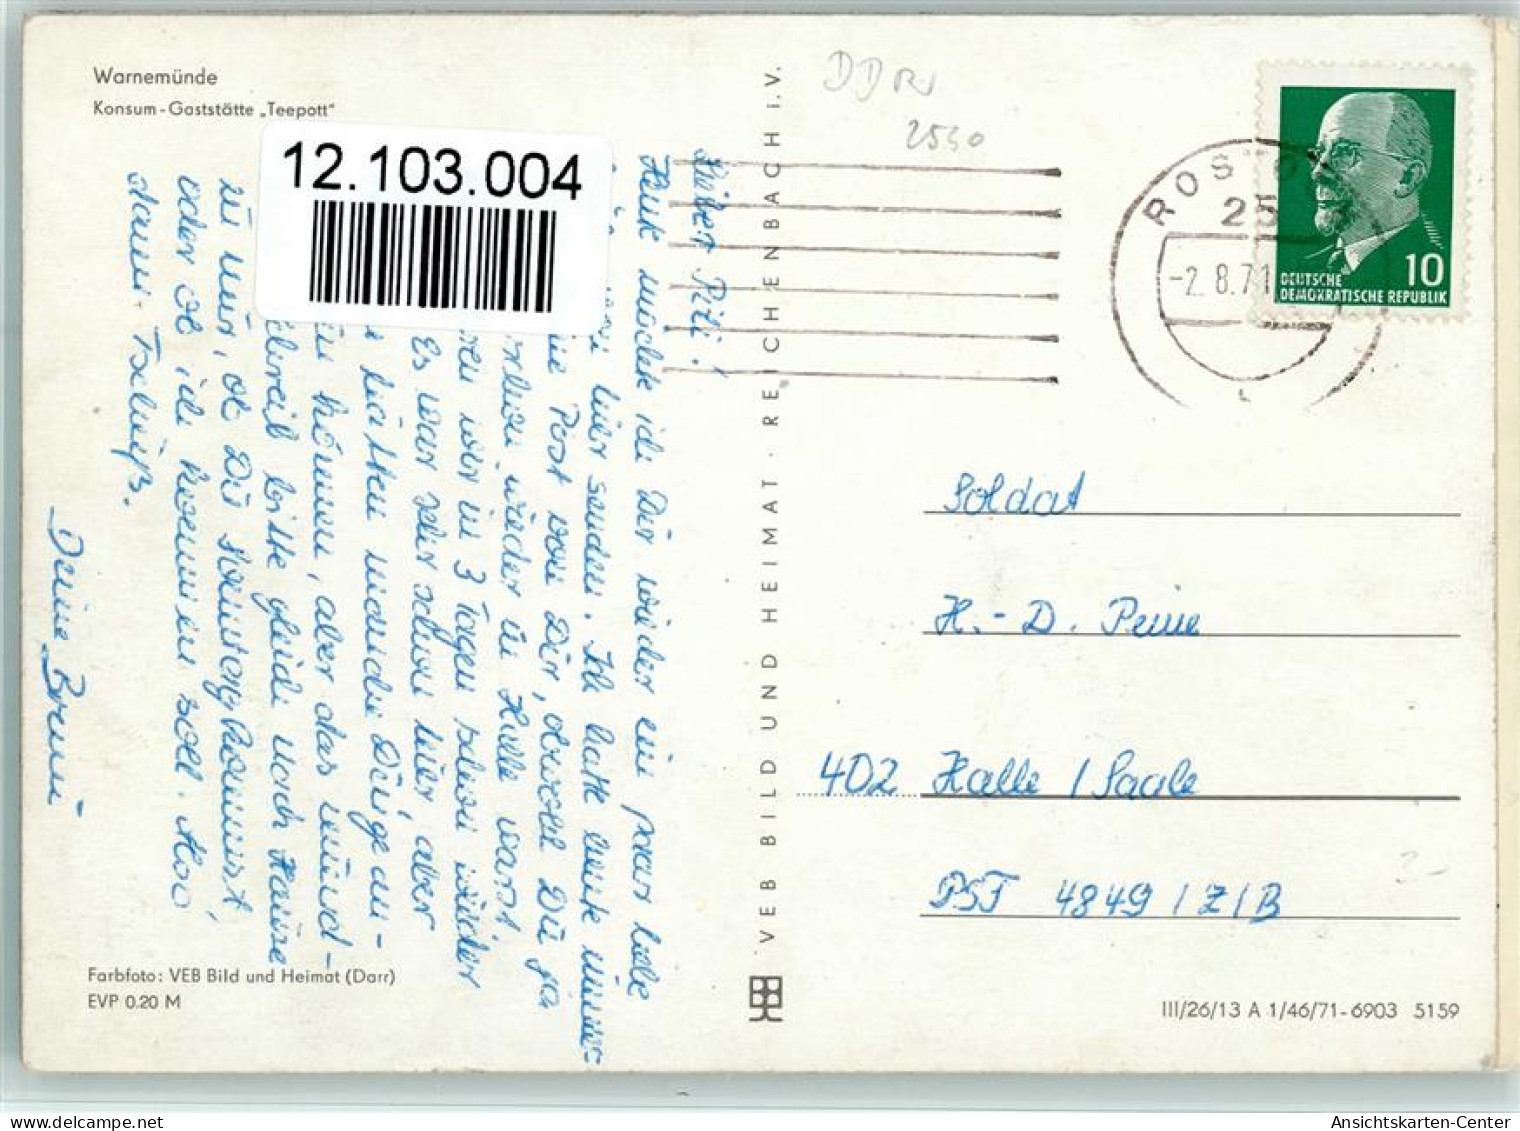 Warnemünde
Konsum-Gaststätte „Teepott"
12.103.004
Lieber Piti!
Heute möchte ich Dir wieder ein paar liebe
hier senden. Ich hatte heute wieder
Post von Dir, obwohl Du ja
wieder in Halle warst.
wir in 3 Tagen schon wieder
Es war sehr schön hier, aber
hätten manche Dinge an-
können, aber das
bitte gleich nach Hause
zu mir, ob Du kommst,
oder ob ich kommen soll. Also
dann Tschüß.
Deine
VEB BILD UND HEIMAT · REICHENBACH i. V.
DDR
2530
ROSTOCK
25
-2.8.71
10
DEUTSCHE
DEMOKRATISCHE REPUBLIK
Soldat
H.-D. Peine
402 Halle / Saale
PSF 4849 / Z / B
Farbfoto: VEB Bild und Heimat (Darr)
EVP 0.20 M
III/26/13 A 1/46/71-6903 5159
oldthing.de
Ansichtskarten-Center